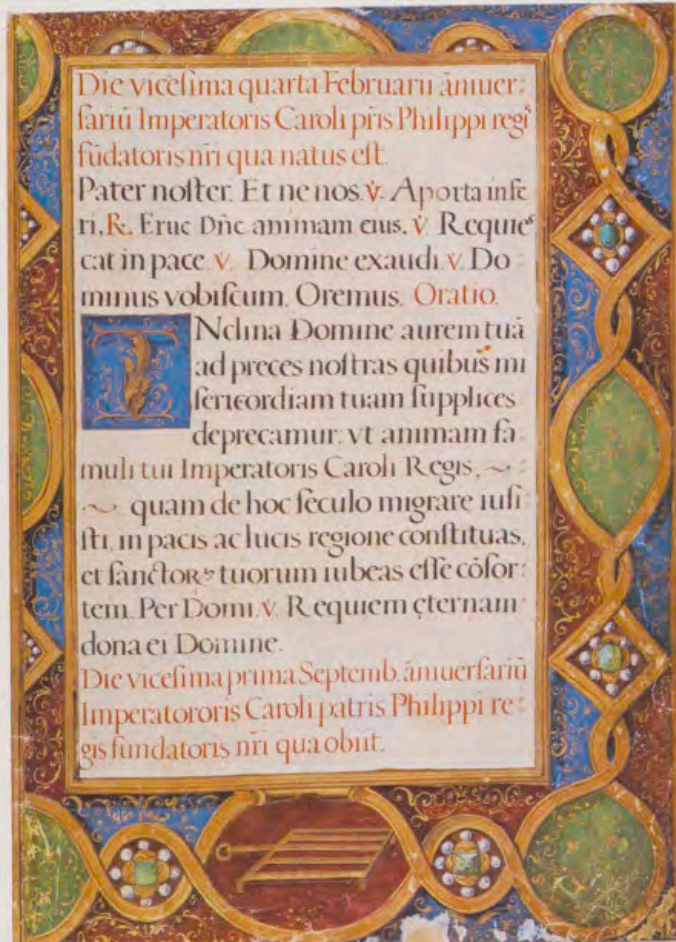 Die viceſima quarta Februarii ãniuer:
ſariũ Imperatoris Caroli pr̃is Philippi regiˢ
fũdatoris nr̃i qua natus eſt.
Pater noſter. Et ne nos. ℣. Aporta infe
ri. ℟. Erue Dñe animam eius. ℣ Requieˢ
cat in pace ℣. Domine exaudi ℣. Do:
minus vobiſcum. Oremus. Oratio.
INclina Domine aurem tuã
ad preces noſtras quibus mi
ſericordiam tuam ſupplices
deprecamur: vt animam fa
muli tui Imperatoris Caroli Regis, ~:
~ quam de hoc ſeculo migrare iuſi
ſti, in pacis ac lucis regione conſtituas,
et ſanctorꝝ tuorum iubeas eſſe cõſor:
tem. Per Domi. ℣. Requiem ęternam
dona ei Domine.
Die viceſima prima Septemb. ãniuerſariũ
Imperatororis Caroli patris Philippi re:
gis fundatoris nr̃i qua obiit.